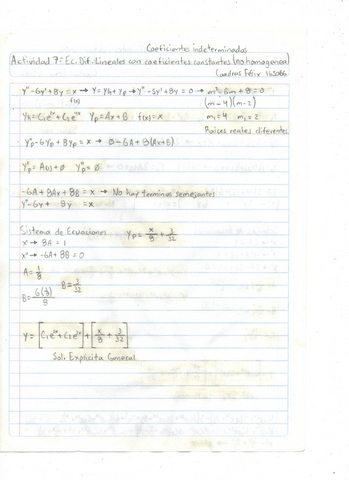 Coeficientes indeterminados
Actividad 7: Ec. Dif. Lineales con coeficientes constantes (no homogenea)
Cuadras Félix
y''-6y'+8y = x → Y = Yh + Yp → y''-6y'+8y = 0 → m²-6m+8=0
f(x)
(m-4)(m-2)
Yh = C₁e⁴ˣ + C₂e²ˣ Yp = Ax + B f(x) = x m₁=4 m₂=2
Raíces reales diferentes
Y''p - 6Y'p + 8Yp = x → 0 - 6A + 8(Ax+B)
Y'p = A(1) + 0 Y''p = 0
-6A + 8Ax + 8B = x → No hay terminos semejantes
y''-6y+ 8y = x
Sistema de Ecuaciones Yp = x/8 + 3/32
x → 8A = 1
x⁰ → -6A + 8B = 0
A = 1/8
B = 6(1/8)/8 B = 3/32
Y = [C₁e⁴ˣ + C₂e²ˣ] + [x/8 + 3/32]
Sol. Explícita General